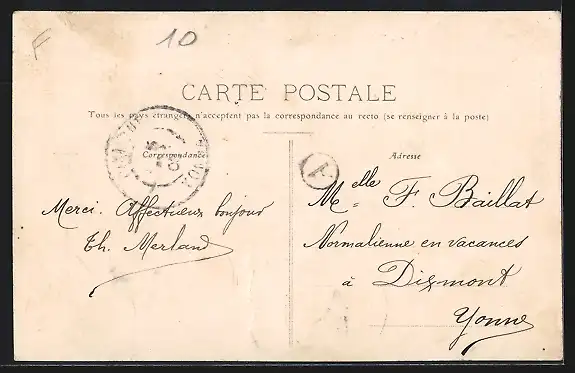 F
10
CARTE POSTALE
Tous les pays étrangers n'acceptent pas la correspondance au recto (se renseigner à la poste)
Correspondance
Merci. Affectueux bonjour
Th. Merland
Adresse
A
Melle F Baillat
Normalienne en vacances
à Dixmont
Yonne